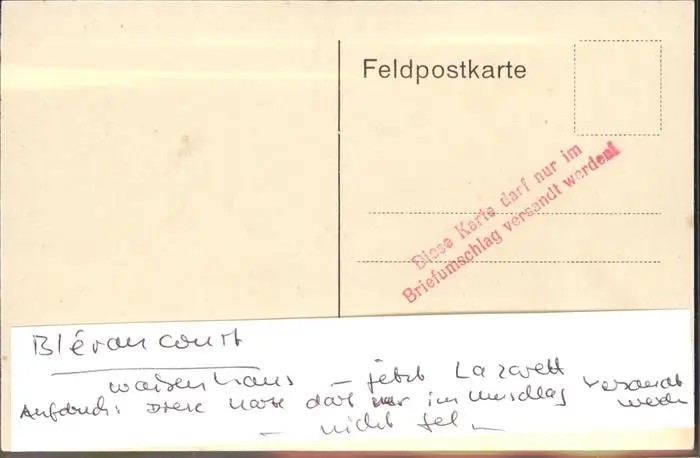 Feldpostkarte
Diese Karte darf nur im
Briefumschlag versandt werden!
Blérancourt
Waisenhaus – jetzt Lazarett
Aufdruck: Diese Karte darf nur im Umschlag versandt
werden
– nicht gel –